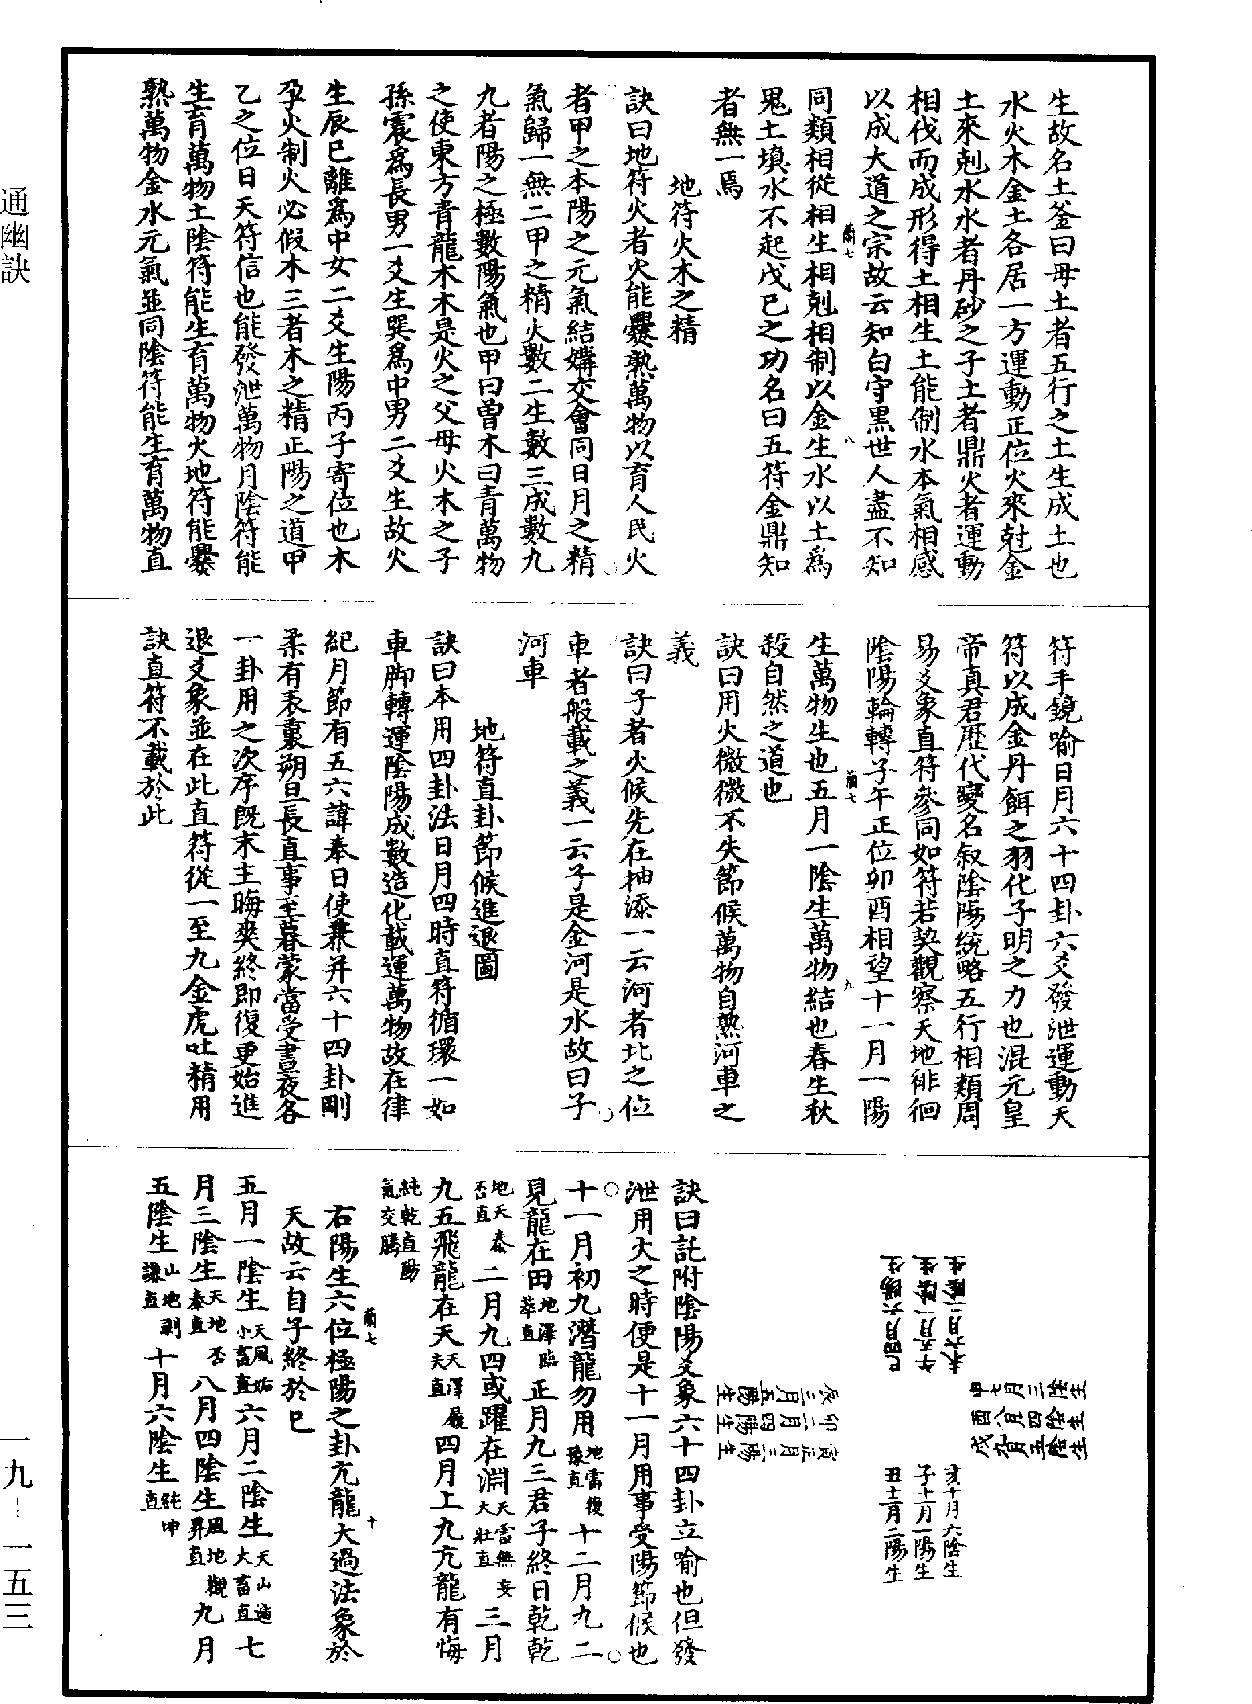 通幽訣
一九-一五三
生故名土釜曰母土者五行之土生成土也
水火木金土各居一方運動正位火來尅金
土來剋水水者丹砂之子土者鼎火者運動
相伐而成形得土相生土能制水本氣相感
以成大道之宗故云知白守黑世人盡不知
蘭七 八
同類相從相生相剋相制以金生水以土為
鬼土填水不起戊已之功名曰五符金鼎知
者無一焉
地符火木之精
訣曰地符火者火能爨熟萬物以育人民火
者甲之本陽之元氣結媾交會同日月之精
氣歸一無二甲之精火數二生數三成數九
九者陽之極數陽氣也甲曰曾木曰青萬物
之使東方青龍木木是火之父母火木之子
孫震為長男一爻生巽為中男二爻生故火
生辰巳離為中女二爻生陽丙子寄位也木
孕火制火必假木三者木之精正陽之道甲
乙之位日天符信也能發泄萬物月陰符能
生育萬物土陰符能生育萬物火地符能爨
熟萬物金水元氣並同陰符能生育萬物直
符手鏡喻日月六十四卦六爻發泄運動天
符以成金丹餌之羽化子明之力也混元皇
帝真君歷代變名叙陰陽統略五行相類周
易爻象直符參同如符若契觀察天地徘徊
陰陽輪轉子午正位卯酉相望十一月一陽
蘭七 九
生萬物生也五月一陰生萬物結也春生秋
殺自然之道也
訣曰用火微微不失節候萬物自熟河車之
義
訣曰子者火候先在抽添一云河者北之位
車者般載之義一云子是金河是水故曰子
河車
地符直卦節候進退圖
訣曰本用四卦法日月四時直符循環一如
車脚轉運陰陽成數造化載運萬物故在律
紀月節有五六諱奉日使兼并六十四卦剛
柔有表裏朔旦長直事至暮蒙當受晝夜各
一卦用之次序旣末主晦爽終即復更始進
退爻象並在此直符從一至九金虎吐精用
訣直符不載於此
未六月二陰生
午五月一陰生
巳四月六陽生
申七月三陰生
酉八月四陰生
戌九月五陰生
辰三月五陽生
卯二月四陽生
寅正月三陽生
亥十月六陰生
子十一月一陽生
丑十二月二陽生
訣曰託附陰陽爻象六十四卦立喻也但發
泄用火之時便是十一月用事受陽節候也
十一月初九潛龍勿用地雷復豫直十二月九二
見龍在田地澤臨萃直正月九三君子終日乾乾
地天泰否直二月九四或躍在淵天雷無妄大壯直三月
九五飛龍在天天澤履夬直四月上九亢龍有悔
純乾直陽氣交騰
右陽生六位極陽之卦亢龍大過法象於
蘭七 十
天故云自子終於巳
五月一陰生天風姤小畜直六月二陰生天山遁大畜直七
月三陰生天地否泰直八月四陰生風地觀昇直九月
五陰生山地剥謙直十月六陰生純坤直